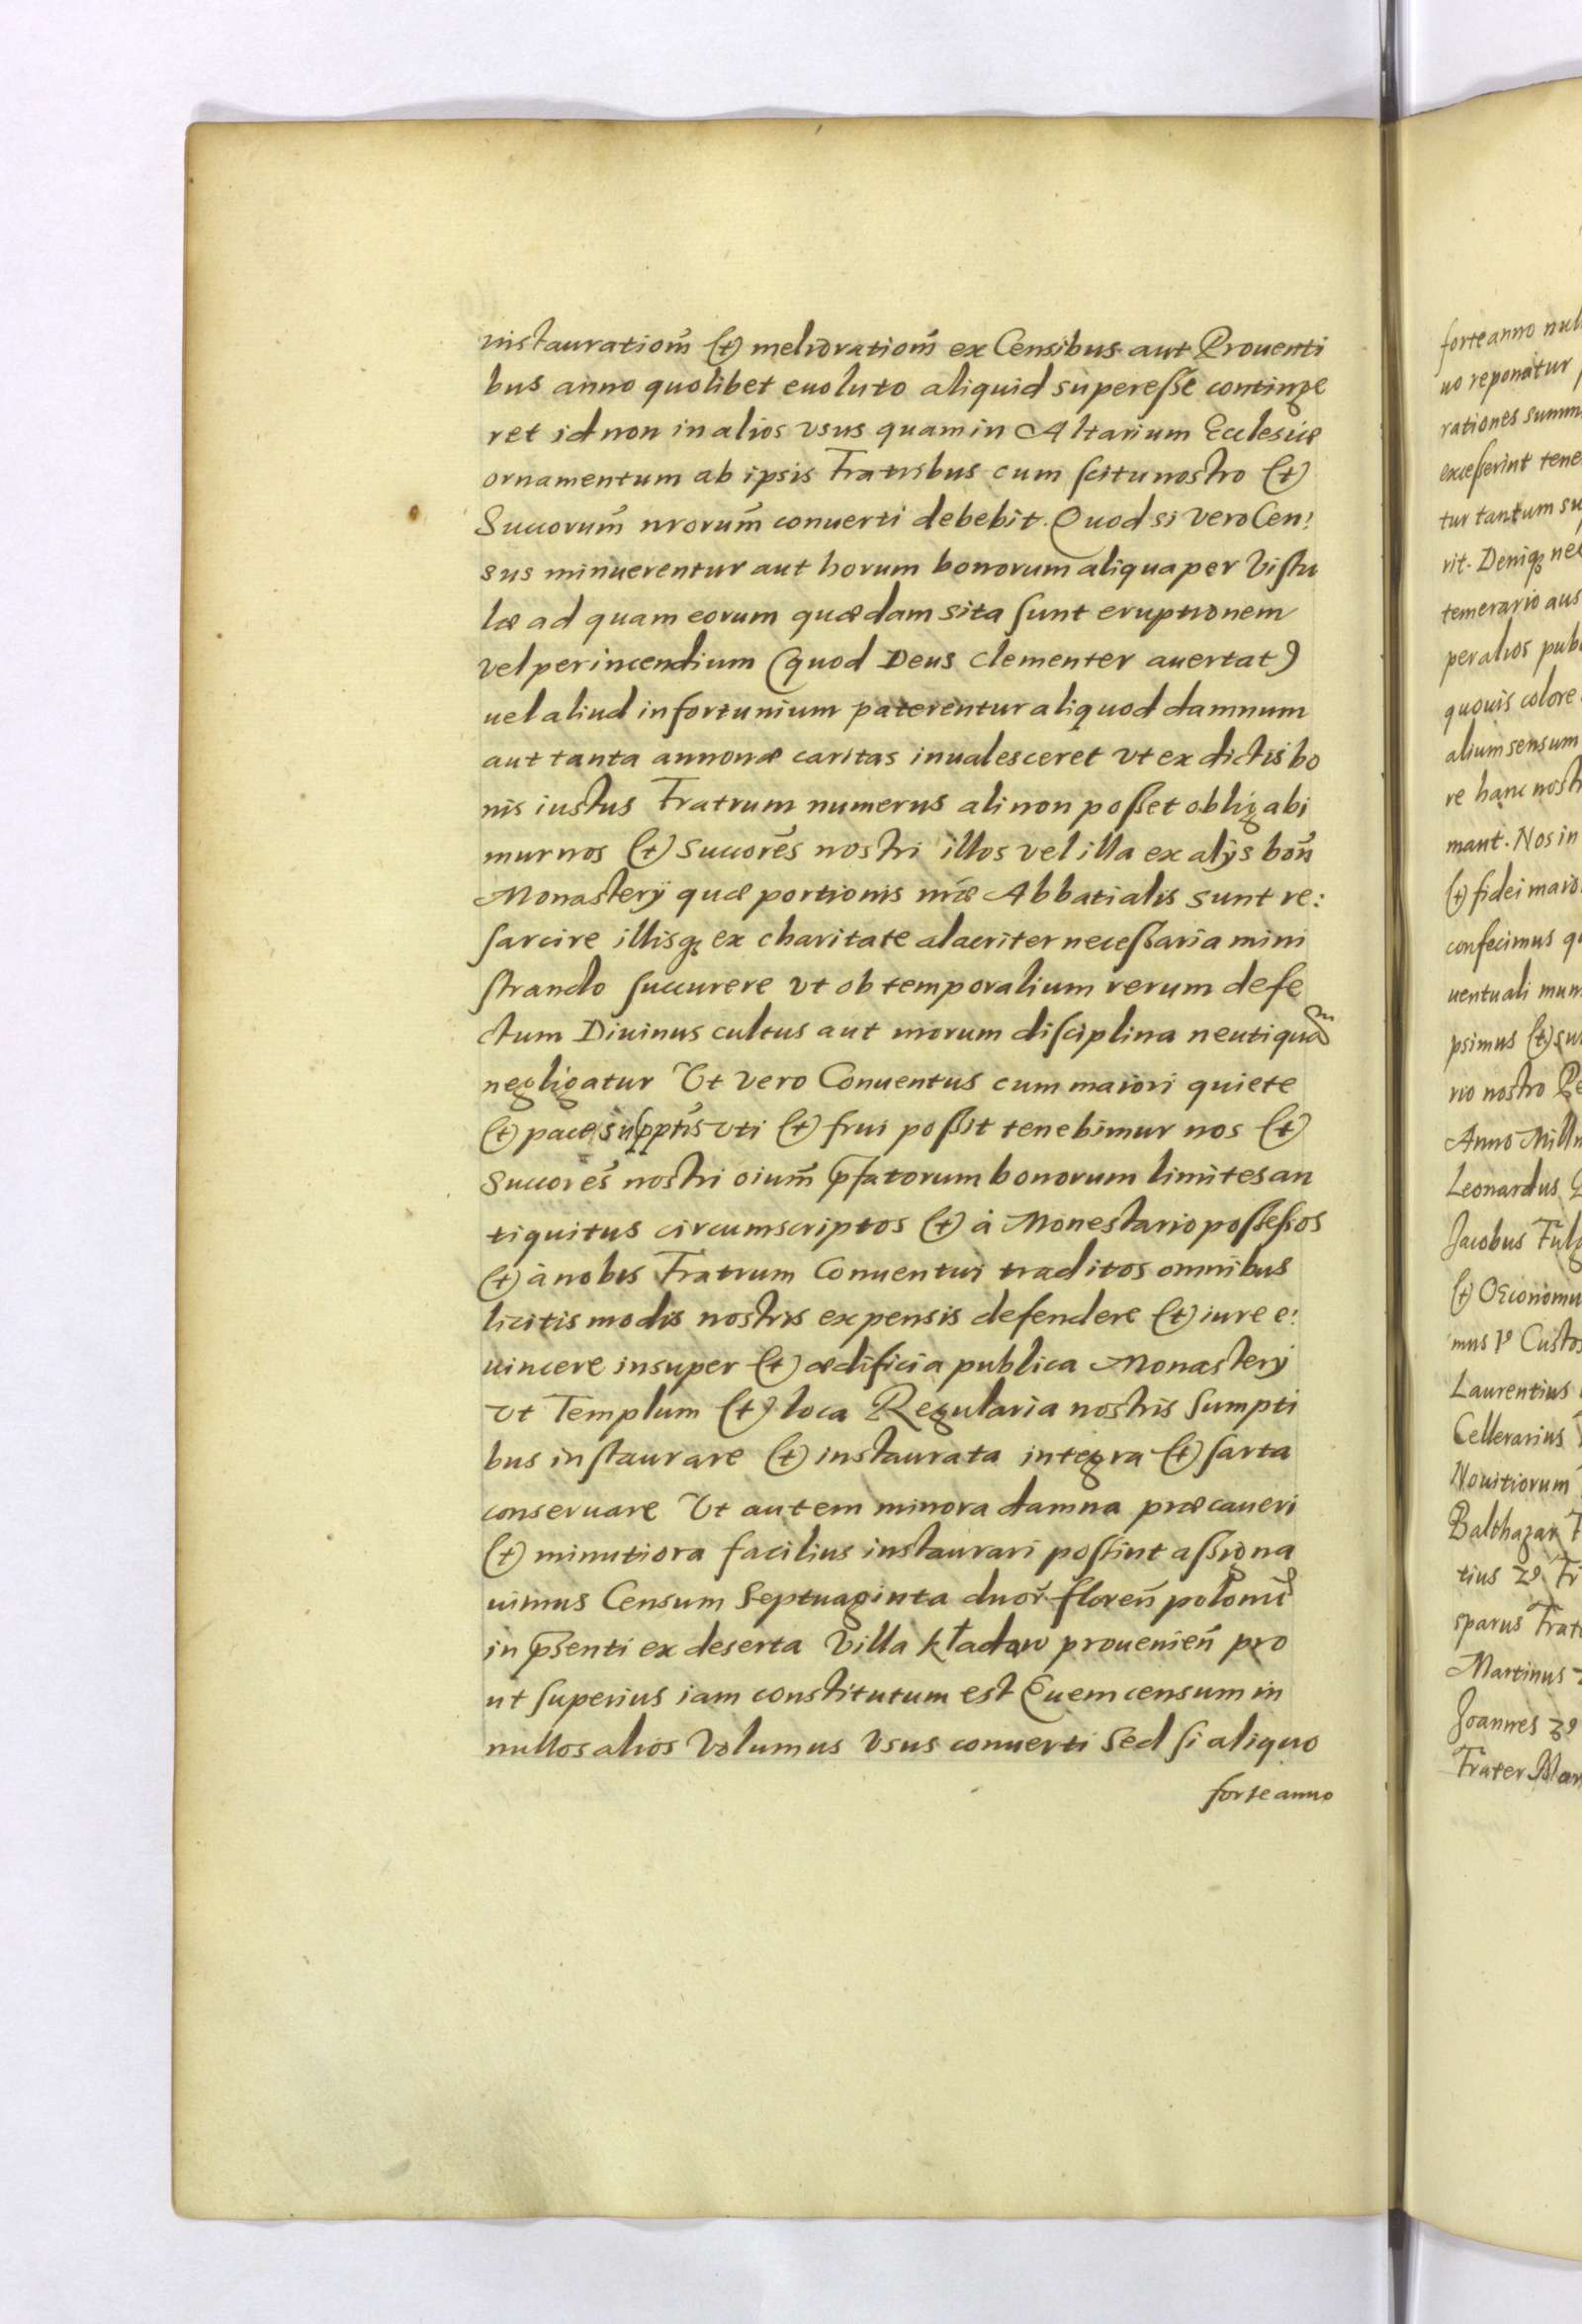 instauratiom̃ (et) melioratiom̃ ex Censibus aut Prouenti
bus anno quolibet euoluto aliquid superesse continge
ret id non in alios vsus quam in Altarium Ecclesiæ
ornamentum ab ipsis Fratribus cum scitu nostro (et)
Succorum̃ nrorum̃ conuerti debebit. Quod si vero Cen:
sus minuerentur aut horum bonorum aliqua per Vistu
læ ad quam eorum quædam sita sunt eruptionem
vel per incendium (quod Deus clementer auertat)
uel aliud infortunium paterentur aliquod damnum
aut tanta annonæ caritas inualesceret vt ex dictis bo
nis iustus Fratrum numerus ali non posset obligabi
mur nos (et) Succorẽs nostri illos vel illa ex alÿs boñ
Monasterÿ quæ portionis nr̃æ Abbatialis sunt re:
sarcire illisq; ex charitate alacriter necessaria mini
strando succurere vt ob temporalium rerum defe
ctum Diuinus cultus aut morum disciplina neutiquam
negligatur Vt vero Conuentus cum maiori quiete
(et) pace supptis vti (et) frui possit tenebimur nos (et)
Succorẽs nostri oium̃ p̃fatorum bonorum limites an
tiquitus circumscriptos (et) à Monestario possessos
(et) à nobis Fratrum Conuentui traditos omnibus
licitis modis nostris expensis defendere (et) iure e:
uincere insuper (et) ædificia publica Monasterÿ
vt Templum (et) loca Regularia nostris sumpti
bus instaurare (et) instaurata integra (et) sarta
conseruare Vt autem minora damna præcaueri
(et) minutiora facilius instaurari possint assigna
uimus Censum Septuaginta duor̃ floreñ polonic
in p̃senti ex deserta Villa kładaw prouenieñ pro
ut superius iam constitutum est Quem censum in
nullos alios Volumus Vsus conuerti Sed si aliquo
forte anno
forte anno nul
uo reponatur
rationes summ
excesserint tene
tur tantum su
rit. Deniq; nec
temerario aus
per alios pub
quouis colore
alium sensum
re hanc nost
mant. Nos in
(et) fidei maio
confecimus q
uentuali mun
psimus (et) su
rio nostro
Anno Mill
Leonardus
Jacobus Fulg
(et) Oeconomu
mus P. Custos
Laurentius
Cellerarius
Nouitiorum
Balthazar F
tius 29 Fr
sparus Frat
Martinus
Joannes 39
Frater Mar